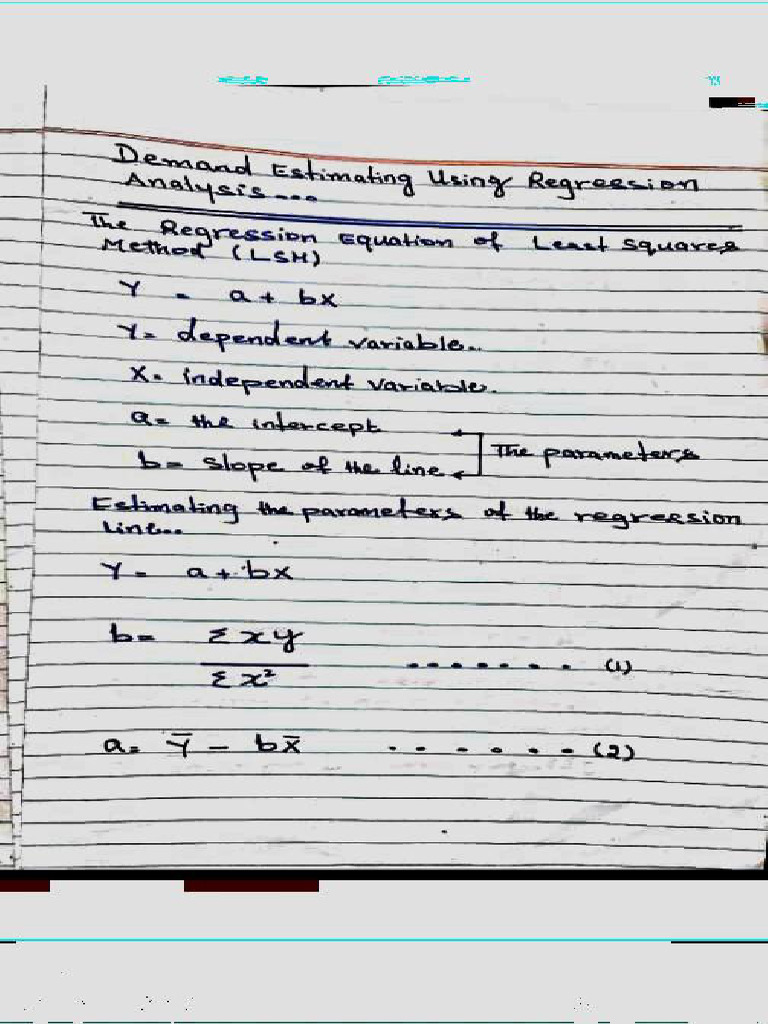 Demand Estimating Using Regression
Analysis...
The Regression Equation of Least Squares
Method (LSM)
Y = a + bX
Y= dependent variable..
X= independent variable.
a= the intercept
The parameters
b= slope of the line
Estimating the parameters of the regression
Line...
Y= a + bX
b= Σxy
Σx² ....... (1)
a= Ȳ - bX̄ ...... (2)